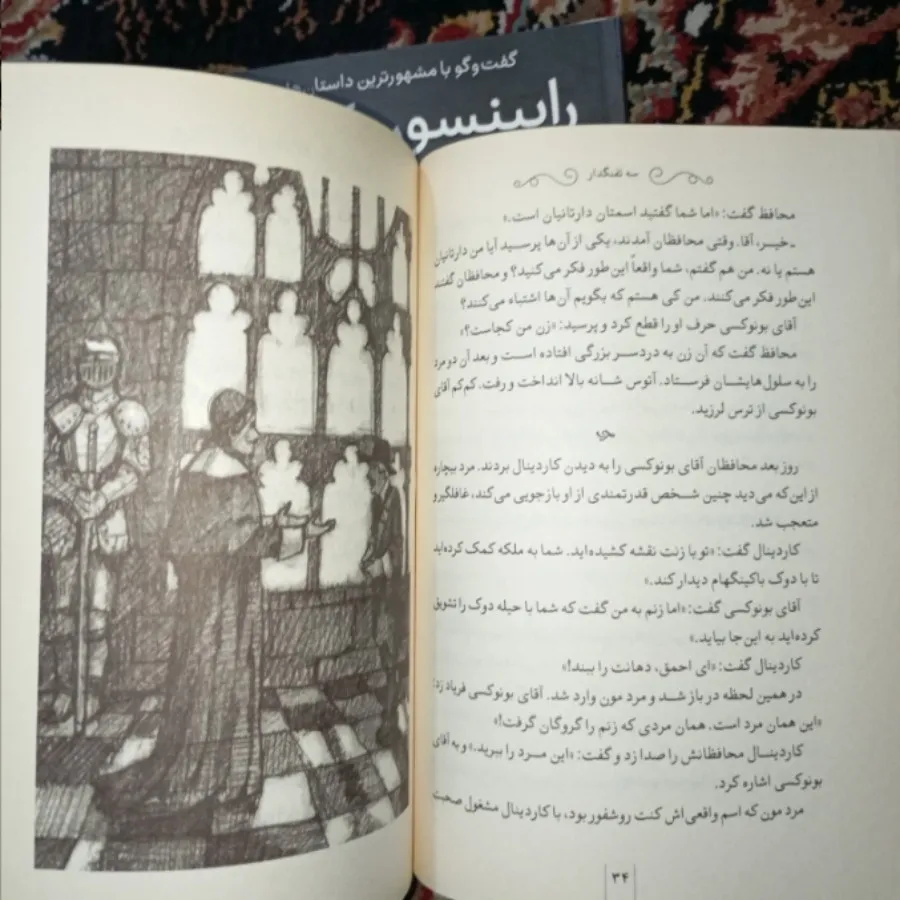 گفت‌وگو با مشهورترین داستان‌های
رابینسون
سه تفنگدار
محافظ گفت: «اما شما گفتید اسمتان دارتانیان است.»
ـ خیـر، آقا. وقتی محافظان آمدند، یکی از آن‌ها پرسـید آیا من دارتانیان
هستم یا نه. من هم گفتم، شما واقعاً این‌طور فکر می‌کنید؟ و محافظان گفتند
این‌طور فکر می‌کنند. من کی هستم که بگویم آن‌ها اشتباه می‌کنند؟
آقای بونوکسی حرف او را قطع کرد و پرسید: «زن من کجاست؟»
محافظ گفت که آن زن به دردسـر بزرگی افتاده اسـت و بعد آن دو مرد
را به سلول‌هایشـان فرسـتاد. آتوس شـانه بالا انداخت و رفت. کم‌کم آقای
بونوکسی از ترس لرزید.
روز بعد محافظان آقای بونوکسی را به دیدن کاردینال بردند. مرد بیچاره
از این‌که می‌دید چنین شـخص قدرتمندی از او بازجویی می‌کند، غافلگیر و
متعجب شد.
کاردینال گفت: «تو با زنت نقشه کشیده‌اید. شما به ملکه کمک کرده‌اید
تا با دوک باکینگهام دیدار کند.»
آقای بونوکسی گفت: «اما زنم به من گفت که شما با حیله دوک را تشویق
کرده‌اید به این‌جا بیاید.»
کاردینال گفت: «ای احمق، دهانت را ببند!»
در همین لحظه در باز شـد و مرد مون وارد شد. آقای بونوکسی فریاد زد:
«این همان مرد است. همان مردی که زنم را گروگان گرفت!»
کاردینـال محافظانش را صدا زد و گفت: «این مـرد را ببرید.» و به آقای
بونوکسی اشاره کرد.
مرد مون که اسم واقعی‌اش کنت روشفور بود، با کاردینال مشغول صحبت
۳۴